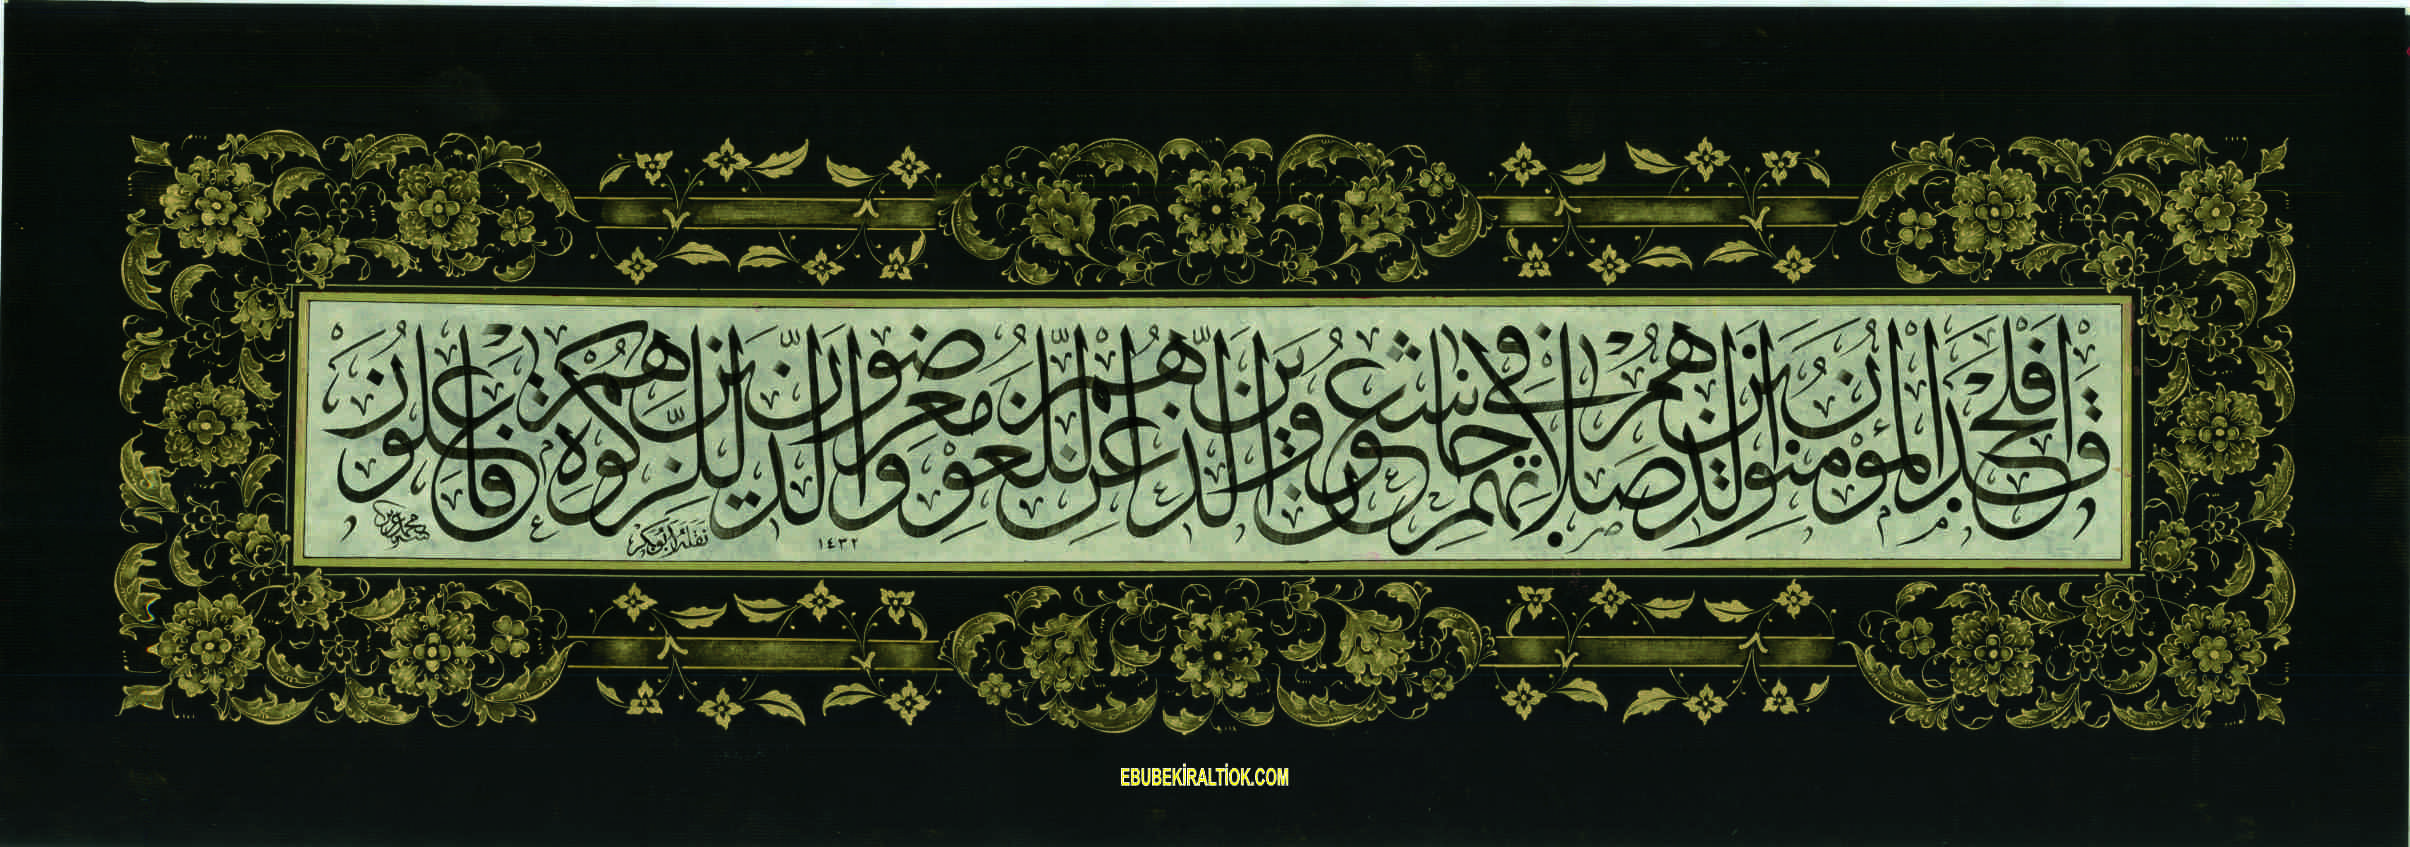 قَدْ أَفْلَحَ الْمُؤْمِنُونَ الَّذِينَ هُمْ فِي صَلَاتِهِمْ خَاشِعُونَ وَالَّذِينَ هُمْ عَنِ اللَّغْوِ مُعْرِضُونَ وَالَّذِينَ هُمْ لِلزَّكٰوةِ فَاعِلُونَ
نقله ابوبكر
١٤٣٢
EBUBEKİRALTİOK.COM